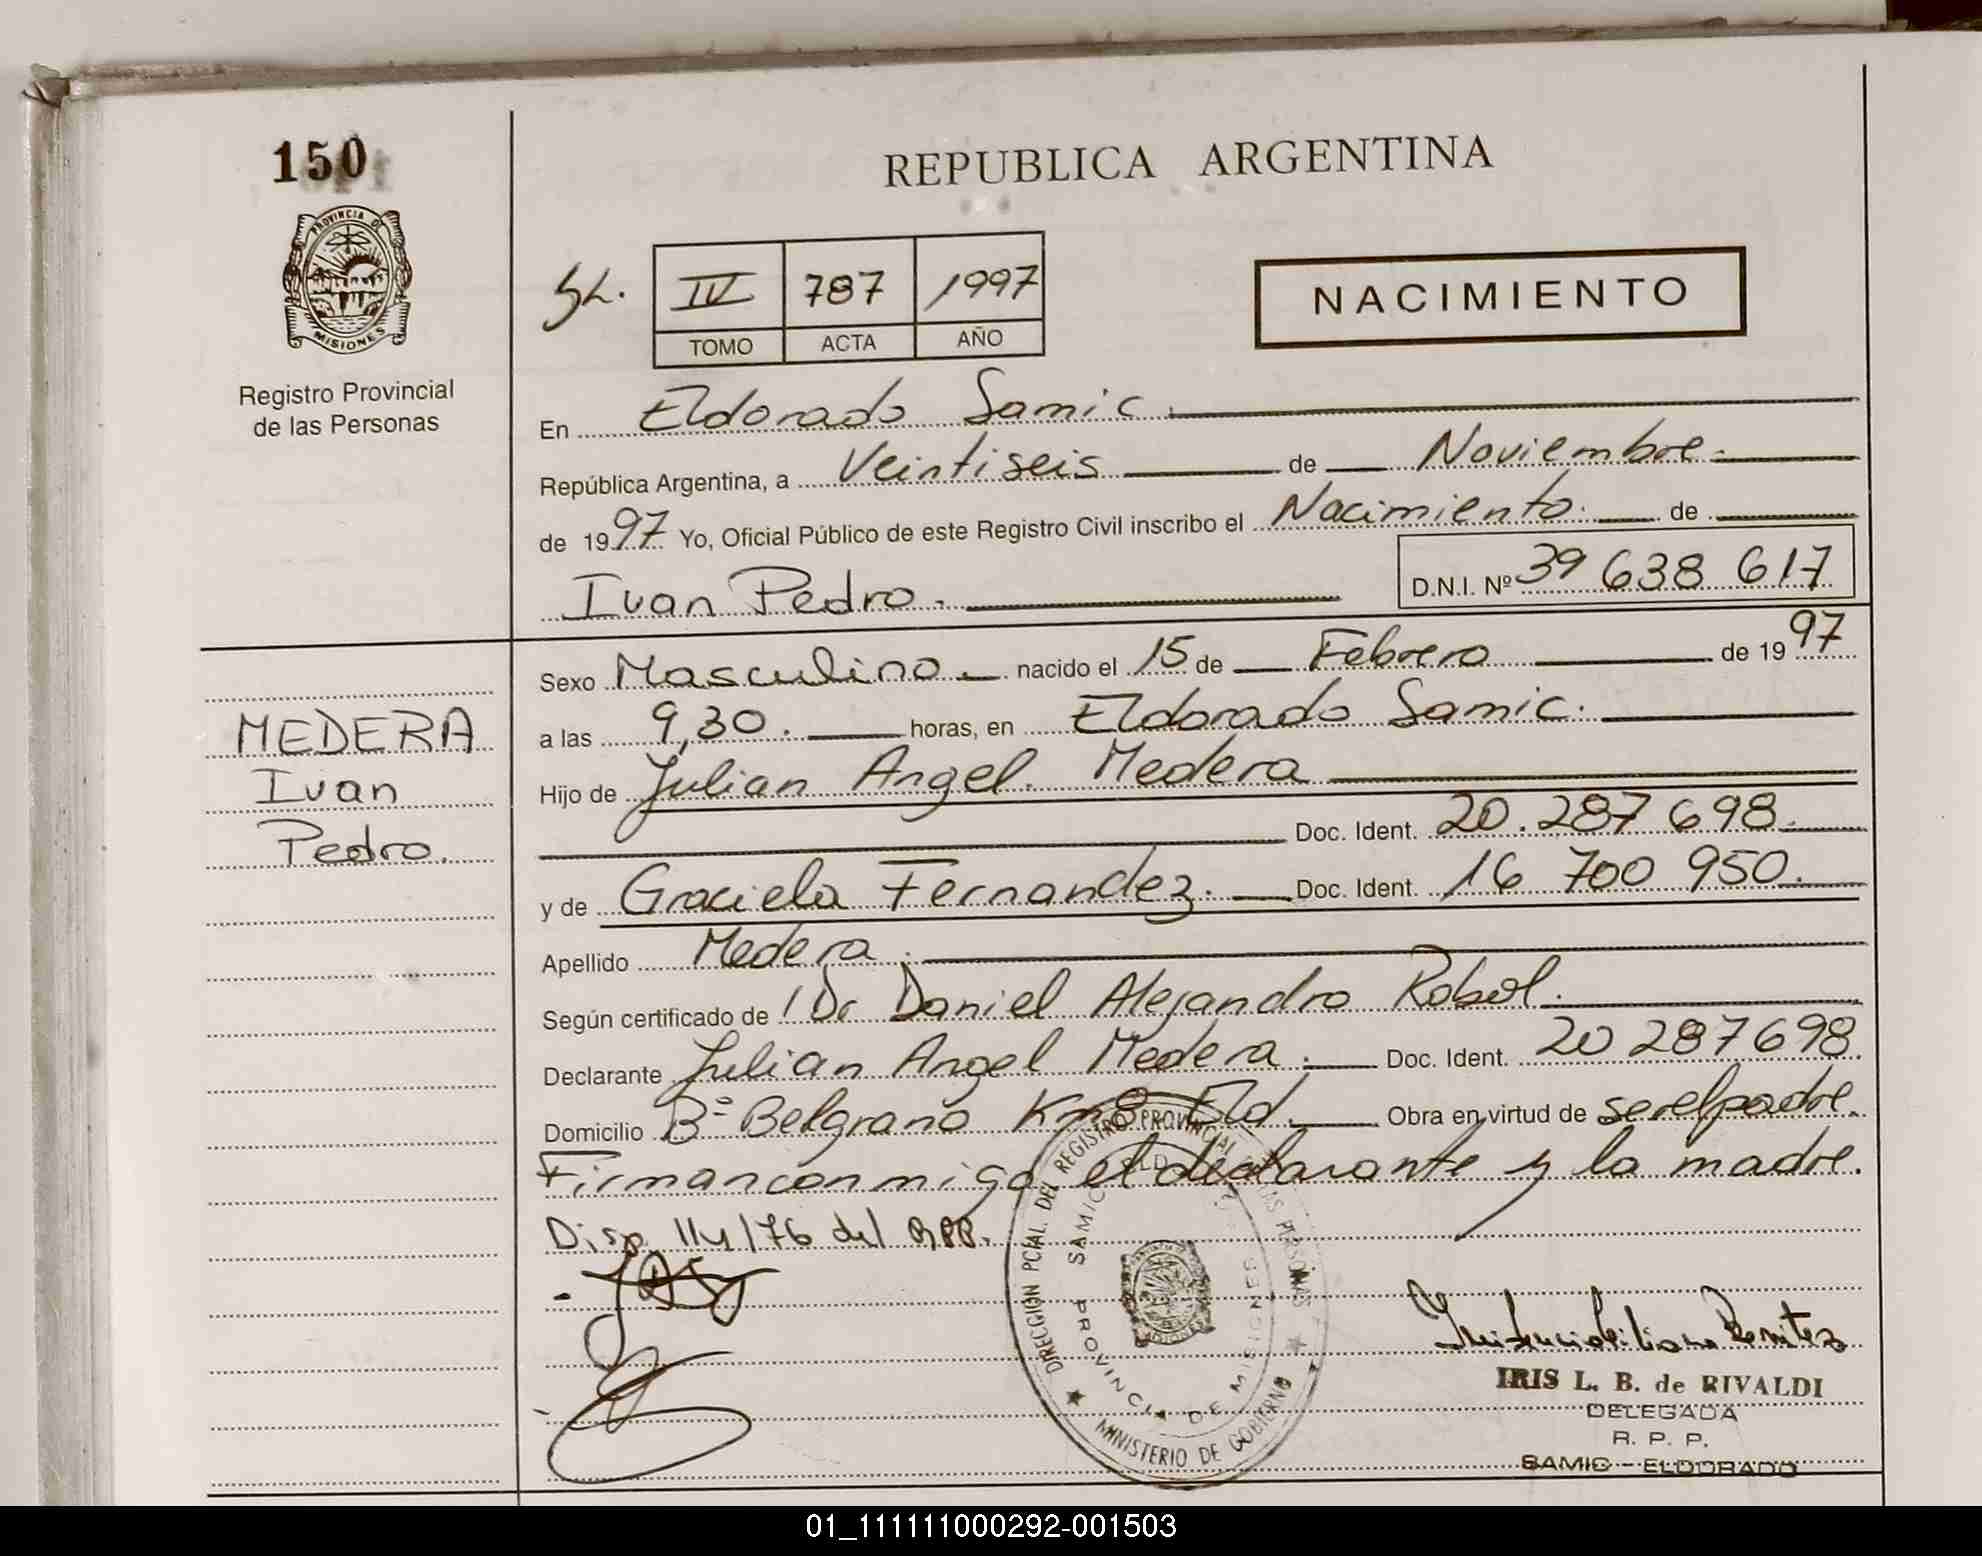 150
REPUBLICA ARGENTINA
PROVINCIA DE
MISIONES
Registro Provincial
de las Personas
IV 787 1997
TOMO ACTA AÑO
NACIMIENTO
En Eldorado Samic.
República Argentina, a Veintiseis de Noviembre.
de 1997 Yo, Oficial Público de este Registro Civil inscribo el Nacimiento. de
Ivan Pedro. D.N.I. Nº 39 638 617
MEDERA
Ivan
Pedro.
Sexo Masculino nacido el 15 de Febrero de 1997
a las 9,30. horas, en Eldorado Samic.
Hijo de Julian Angel. Medera
Doc. Ident. 20.287 698.
y de Graciela Fernandez. Doc. Ident. 16 700 950.
Apellido Medera.
Según certificado de Dr Daniel Alejandro Robol.
Declarante Julian Angel Medera. Doc. Ident. 20 287698
Domicilio Bº Belgrano Km8 Eld. Obra en virtud de serelpadre.
Firmanconmigo eldeclarante y la madre.
Disp. 114/76 del RPP.
DIRECCIÓN PCIAL. DEL REGISTRO PROVINCIAL DE LAS PERSONAS
SAMIC ELD
PROVINCIA DE MISIONES
MINISTERIO DE GOBIERNO
IRIS L. B. de RIVALDI
DELEGADA
R. P. P.
SAMIC - ELDORADO
01_111111000292-001503